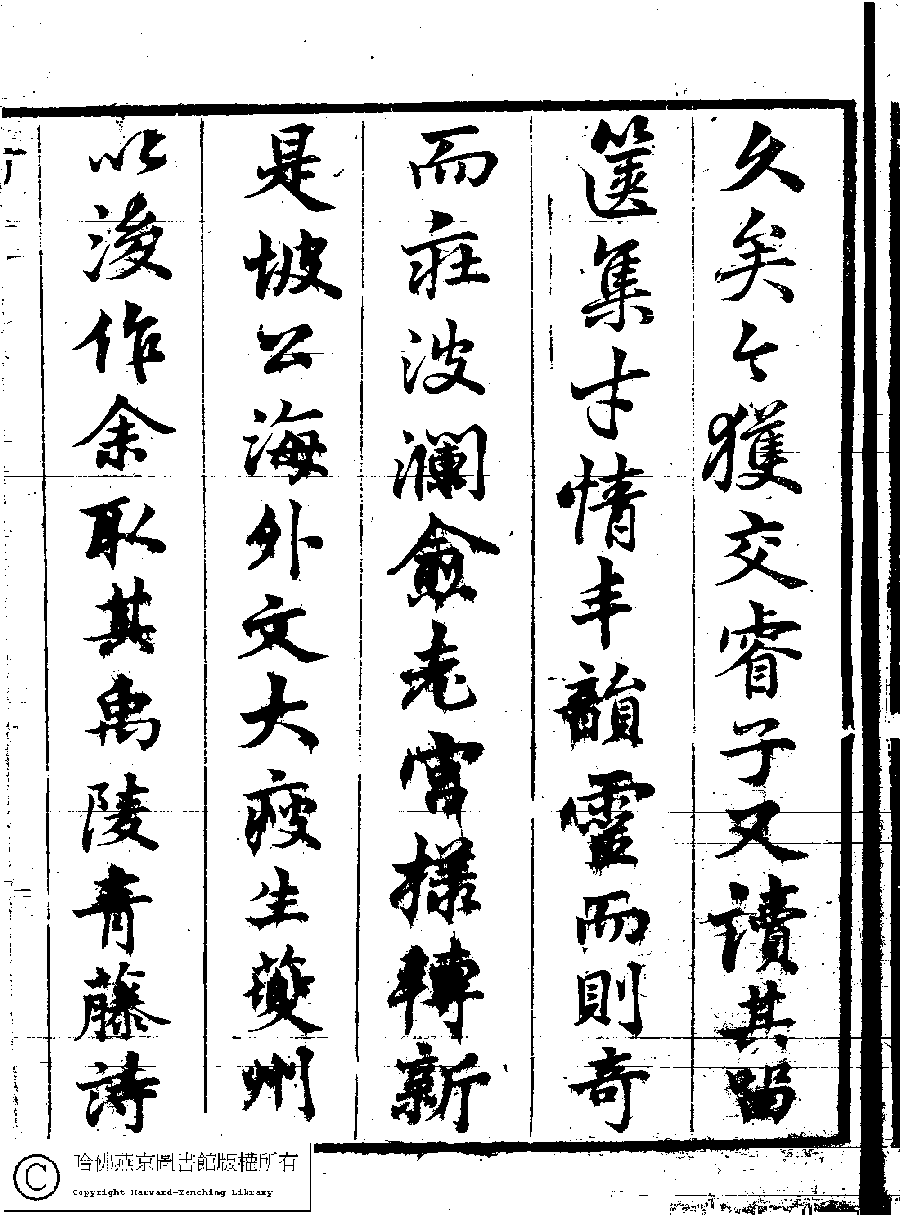 久矣今獲交睿子又讀其留
篋集才情丰韻靈而則奇
而莊波瀾愈老富樣轉新
是坡公海外文大瘦生夔州
以後作余取其禹陵青藤詩
哈佛燕京圖書館版權所有
Copyright Harvard-Yenching Library